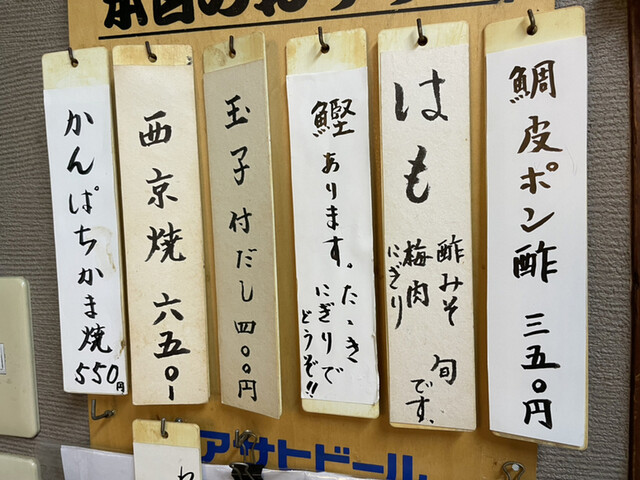 本日のおすすめ
鯛皮ポン酢 三五〇円
はも 酢みそ
梅肉
にぎり
旬です、
鰹あります。たゝき
にぎりで
どうぞ!!
玉子付だし 四〇〇円
西京焼 六五〇ー
かんぱちかま焼
550円
アサトドール